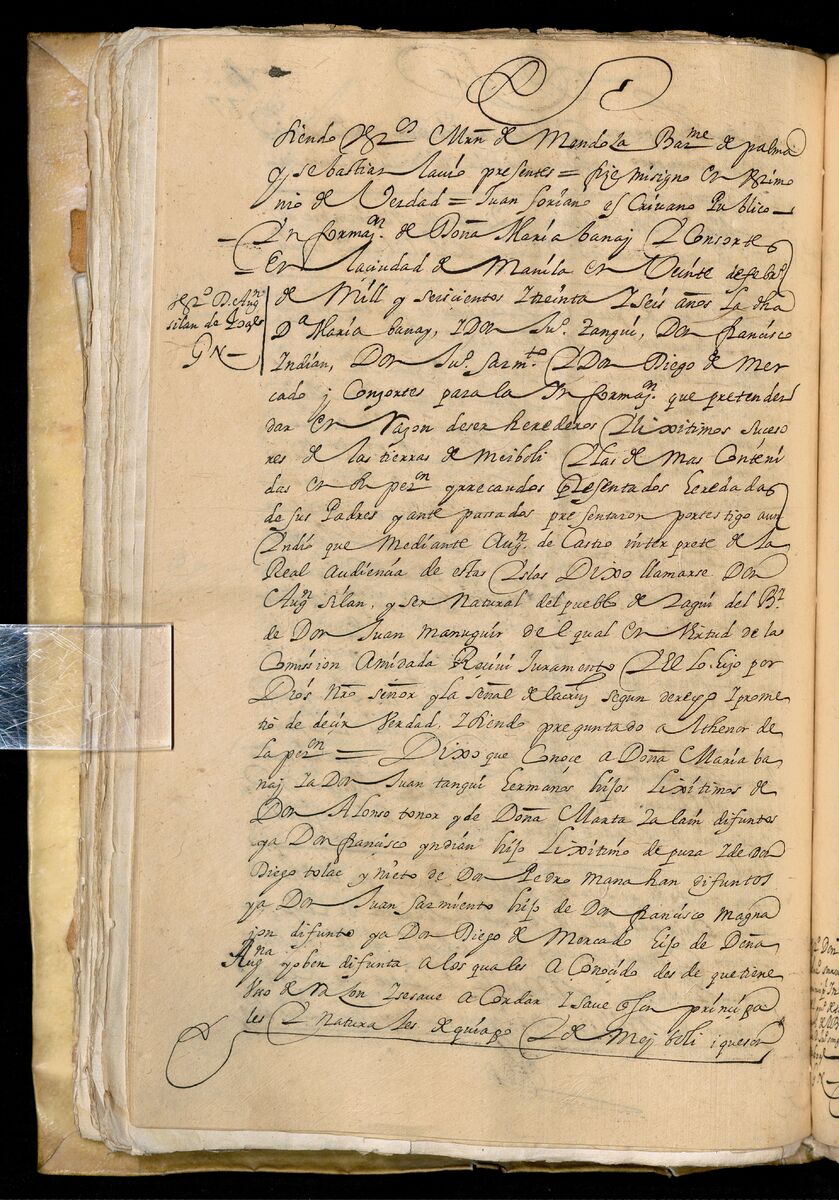 siendo tgos Mrn de Mendoza Barme de palma
y sebastian lacio presentes = fize mi signo en testimo
nio de Verdad = Juan soriano escrivano Publico
Ynformaon de Doña Maria banaj Y Consortes
En la ciudad de Manila en Veinte de febro
de Mill y seiscientos Y treinta Y seis años La dha
Da Maria banay, Y Don Juo tangui, Don francisco
Indian, Don Juo sarmto Y Don Diego de Mer
cado y Consortes para la Ynformaon que pretenden
dar en Razon de ser herederos Y lixitimos suceso
res de las tierras de Meiboli Y las demas Conteni
das en su peon y rrecaudos presentados heredadas
de sus Padres y ante passados presentaron por testigo a un
Yndio que Mediante Augn de Castro ynterprete de la
Real Audiencia de estas Yslas Dixo llamarse Don
Augn silan, y ser Natural del pueblo de tagui del Bo
de Don Juan manuguir del qual en Virtud de la
Comission Amidada Receui Juramento Y El lo hizo por
Dios Nro señor y la señal de la cruz segun derecho Y prome
tio de decir Verdad, Y siendo preguntado a thenor de
la peon = Dixo que Conoce a Doña Maria ba
naj Y a Don Juan tangui hermanos hijos Lixitimos de
Don Alonso tonor y de Doña Marta Lalain difuntos
y a Don francisco yndian hijo Lixitimo de pura Y de Don
Diego tolac y nieto de Don Pedro manahan difuntos
y a Don Juan Sarmiento hijo de Don francisco Magna
jon difunto y a Don Diego de Mercado hijo de Doña
Augna yoben difunta a los quales a Conocido desde que tiene
Vso de razon Y se saue acordar Y saue son principa
les Y Naturales de quiapo Y de Meyboli y que son
tgo D. Augn
silan de
Gn